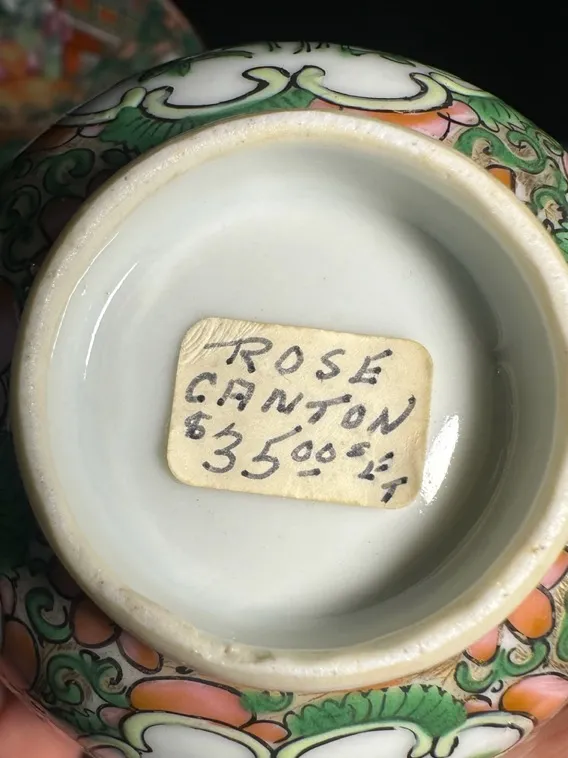 ROSE
CANTON
$35.00 SET